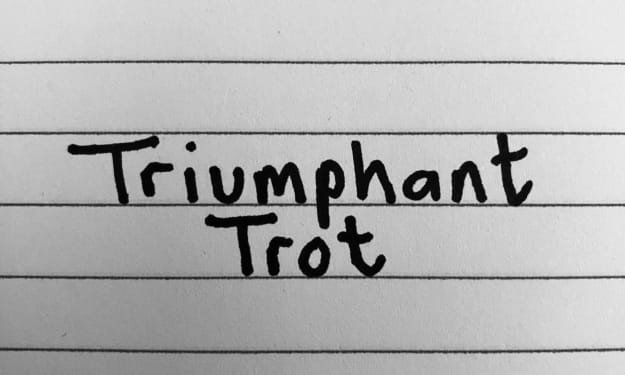 Triumphant
Trot